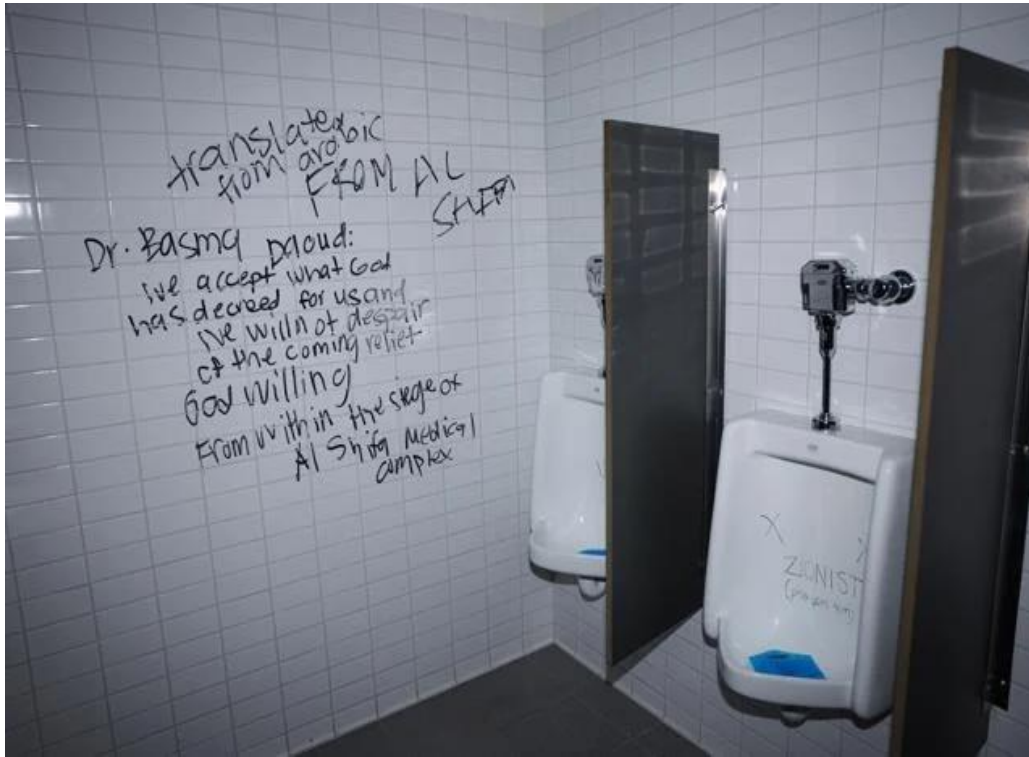 translated
from arabic
FROM AL
SHIFA
Dr. Basma Daoud:
we accept what God
has decreed for us and
we will not despair
of the coming relief
God willing
From within the siege of
Al Shifa Medical
complex
X X
ZIONIST